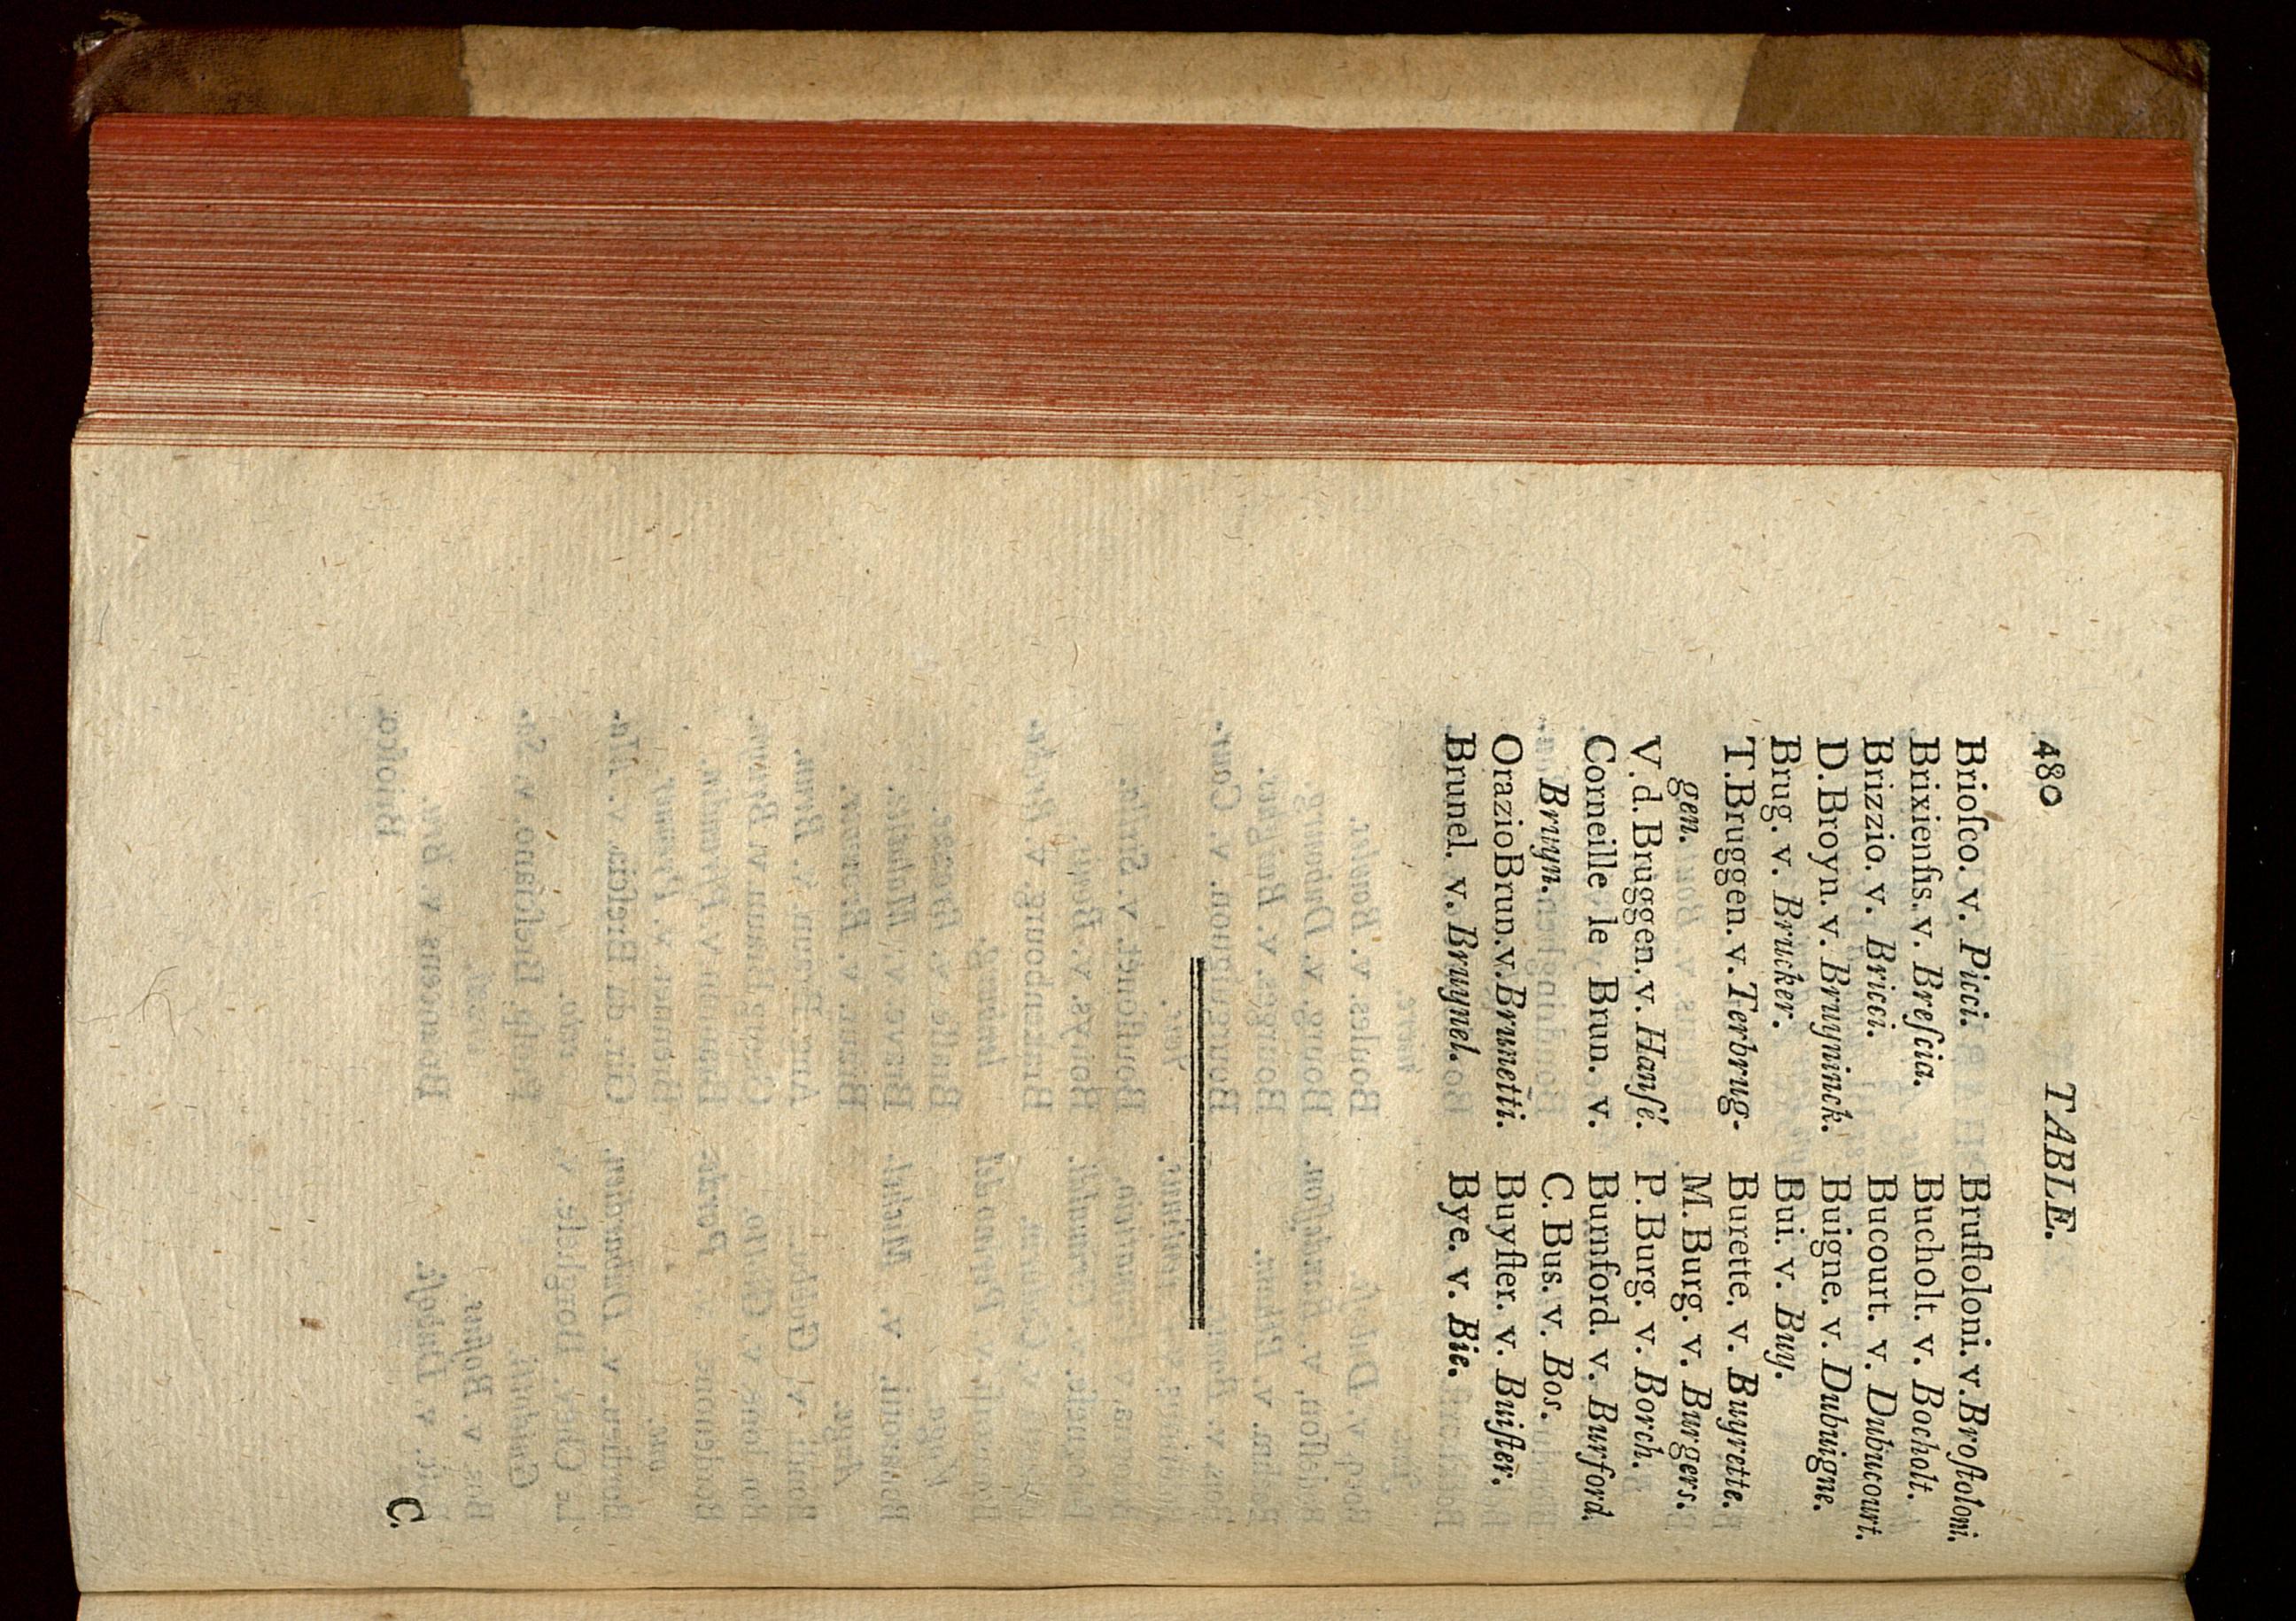 480 TABLE.
Brioſco. v. Picci.
Brixienſis. v. Breſcia.
Brizzio. v. Bricci.
D. Broyn. v. Bruyninck.
Brug. v. Brucker.
T. Bruggen. v. Terbrug-
gen.
V. d. Bruggen. v. Hanſé.
Corneille le Brun. v.
Bruyn.
Orazio Brun. v. Brunetti.
Brunel. v. Bruynel.
Bruſtoloni. v. Broſtoloni.
Bucholt. v. Bocholt.
Bucourt. v. Dubucourt.
Buigne. v. Dubuigne.
Bui. v. Buy.
Burette. v. Buyrette.
M. Burg. v. Burgers.
P. Burg. v. Borch.
Burnford. v. Burford.
C. Bus. v. Bos.
Buyſter. v. Buiſter.
Bye. v. Bie.
C.